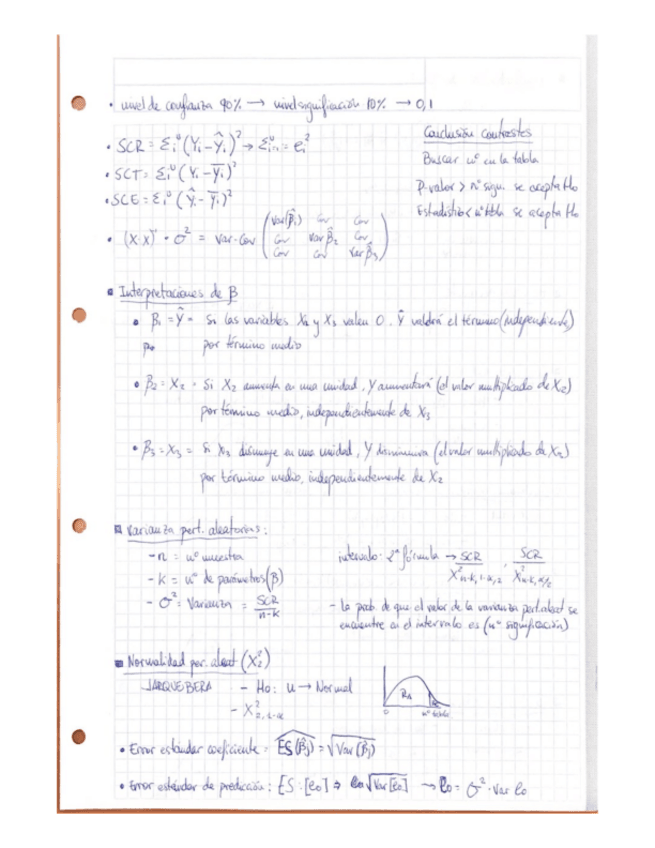 • nivel de confianza 90% → nivel significación 10% → 0,1
• SCR = Σᵢⁿ (Yᵢ - Ŷᵢ)² → Σᵢ₌₁ⁿ = eᵢ²
• SCT = Σᵢⁿ (Yᵢ - Ȳᵢ)²
• SCE = Σᵢⁿ (Ŷᵢ - Ȳᵢ)²
• (X·X)' · σ² = Var-Cov ( Var(β̂₁) Cov Cov
Cov Var β̂₂ Cov
Cov Cov Var β̂₃ )
Conclusión contrastes
Buscar nº en la tabla
P-valor > nº signi. se acepta Ho
Estadístico < nº tabla se acepta Ho
Interpretaciones de β
• β₁ = Ŷ = Si las variables X₂ y X₃ valen 0, Ŷ valdrá el término (independiente)
por término medio
• β₂ = X₂ = Si X₂ aumenta en una unidad, Y aumentará (el valor multiplicado de X₂)
por término medio, independientemente de X₃
• β₃ = X₃ = Si X₃ disminuye en una unidad, Y disminuira (el valor multiplicado de X₂)
por término medio, independientemente de X₂
Varianza pert. aleatorias:
- n = nº muestra
- k = nº de parámetros (β)
- σ² = Varianza = SCR / n-k
intervalo: 2ª fórmula → SCR / X²ₙ₋ₖ, ₁₋α/₂ , SCR / X²ₙ₋ₖ, α/₂
- La prob. de que el valor de la varianza pert. aleat se
encuentre en el intervalo es (nº significación)
Normalidad per. aleat (X²₂)
JARQUE BERA - Ho: u → Normal
- X²₂, ₁₋α
RA
0 nº tabla
• Error estándar coeficiente = ES(β̂j) = √Var(β̂j)
• Error estándar de predicción: ES: [e₀] ⇒ √Var[e₀] → e₀ = σ² · Var e₀